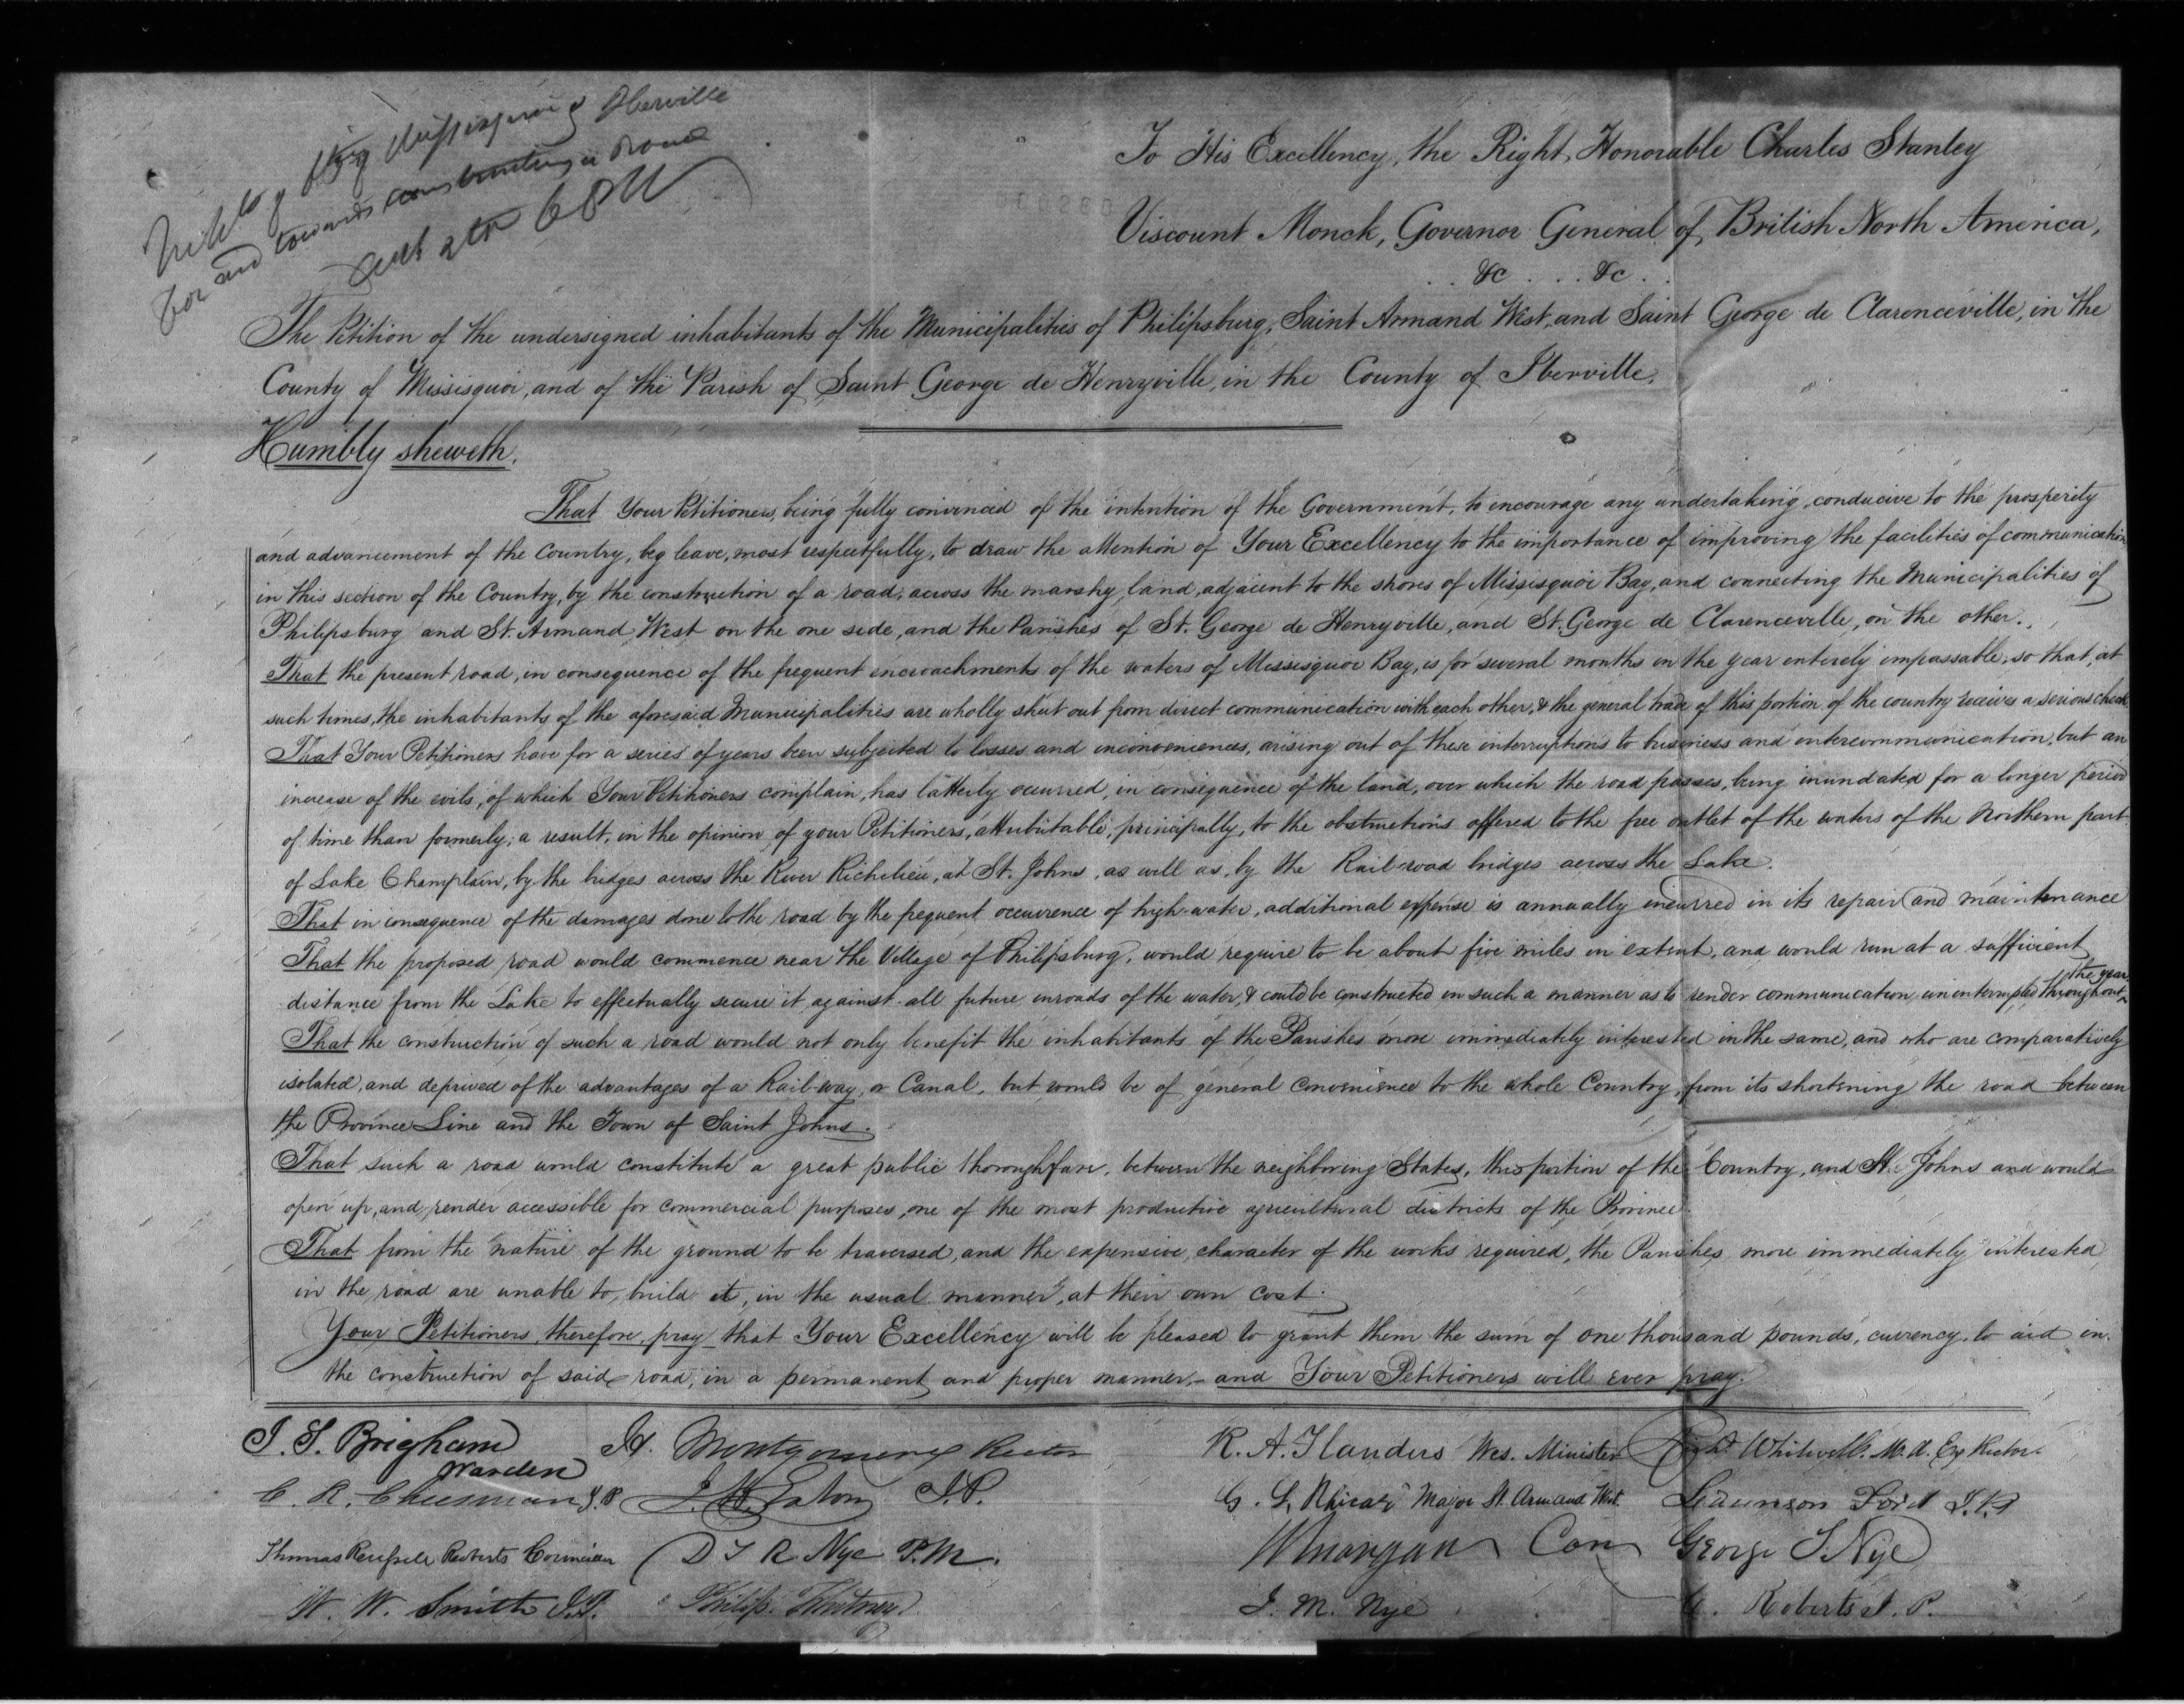 Missisquoi & Iberville
for and towards constructing a Road
To His Excellency, the Right, Honorable Charles Stanley
Viscount Monck, Governor General of British North America,
&c . . . &c .
The Petition of the undersigned inhabitants of the Municipalities of Philipsburg, Saint Armand West, and Saint George de Clarenceville, in the
County of Missisquoi, and of the Parish of Saint George de Henryville, in the County of Iberville,
Humbly sheweth.
That Your Petitioners, being fully convinced of the intention of the Government, to encourage any undertaking, conducive to the prosperity
and advancement of the Country, beg leave, most respectfully, to draw the attention of Your Excellency to the importance of improving the facilities of communication
in this section of the Country, by the construction of a road, across the marshy land, adjacent to the shores of Missisquoi Bay, and connecting the Municipalities of
Philipsburg and St. Armand West on the one side, and the Parishes of St. George de Henryville, and St. George de Clarenceville, on the other.
That the present road, in consequence of the frequent encroachments of the waters of Missisquoi Bay, is for several months in the year entirely impassable, so that, at
such times, the inhabitants of the aforesaid Municipalities are wholly shut out from direct communication with each other, & the general trade of this portion of the country receives a serious check
That Your Petitioners have for a series of years been subjected to losses and inconveniences, arising out of these interruptions to business and intercommunication, but an
increase of the evils, of which Your Petitioners complain, has latterly occurred, in consequence of the land, over which the road passes, being inundated for a longer period
of time than formerly; a result, in the opinion of your Petitioners, attributable, principally, to the obstructions offered to the free outlet of the waters of the Northern part
of Lake Champlain, by the bridges across the River Richelieu, at St. Johns, as well as, by the Rail-road bridges across the Lake.
That in consequence of the damages done to the road by the frequent occurrence of high-water, additional expense is annually incurred in its repair and maintenance
That the proposed road would commence near the Village of Philipsburg, would require to be about five miles in extent, and would run at a sufficient
distance from the Lake to effectually secure it against all future inroads of the water, & could be constructed in such a manner as to render communication uninterrupted throughout the year
That the construction of such a road would not only benefit the inhabitants of the Parishes more immediately interested in the same, and who are comparatively
isolated, and deprived of the advantages of a Rail-way, or Canal, but would be of general convenience to the whole Country, from its shortening the road between
the Province Line and the Town of Saint Johns.
That such a road would constitute a great public thoroughfare, between the neighboring States, this portion of the Country, and St. Johns and would
open up, and render accessible for commercial purposes, one of the most productive agricultural districts of the Province.
That from the nature of the ground to be traversed, and the expensive character of the works required, the Parishes more immediately interested
in the road are unable to, build it, in the usual manner, at their own cost.
Your Petitioners, therefore, pray that Your Excellency will be pleased to grant them the sum of one thousand pounds, currency, to aid in
the construction of said road, in a permanent and proper manner, - and Your Petitioners will ever pray.
J. S. Brigham Warden
H. Montgomery Rector
R. A. Flanders Wes. Minister
Whitwell. M. A. Rector.
C. R. Cheesman J.P.
J. H. Eaton J.P.
Major St. Armand West.
Ford J.P.
Thomas Roberts
D T R Nye P.M.
W Morgan
George S. Nye
W. W. Smith J.P.
Philip Whitney
J. M. Nye
Roberts J. P.